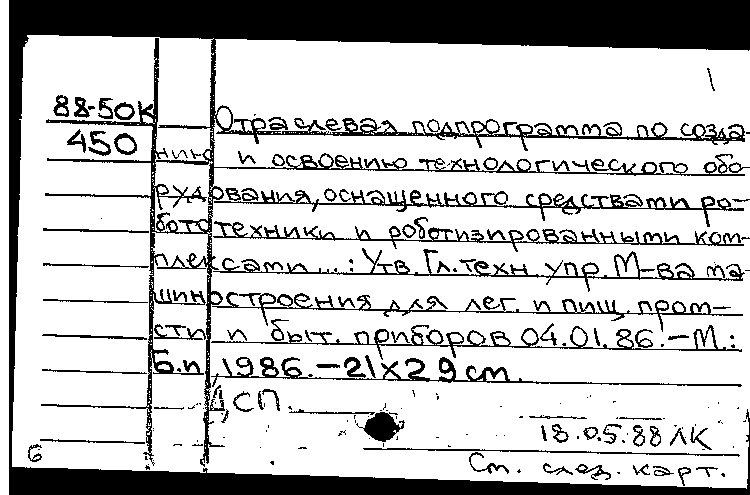 88-50К Отраслевая подпрограмма по созда-
450 нию и освоению технологического обо-
рудования, оснащенного средствами ро-
бототехники и роботизированными ком-
плексами...: Утв. Гл. техн. упр. М-ва ма-
шиностроения для лег. и пищ. пром-
сти и быт. приборов 04.01.86. - М.:
Б.и., 1986. - 21×29 см.
ДСП.
18.05.88 ЛК
6 См. след. карт.